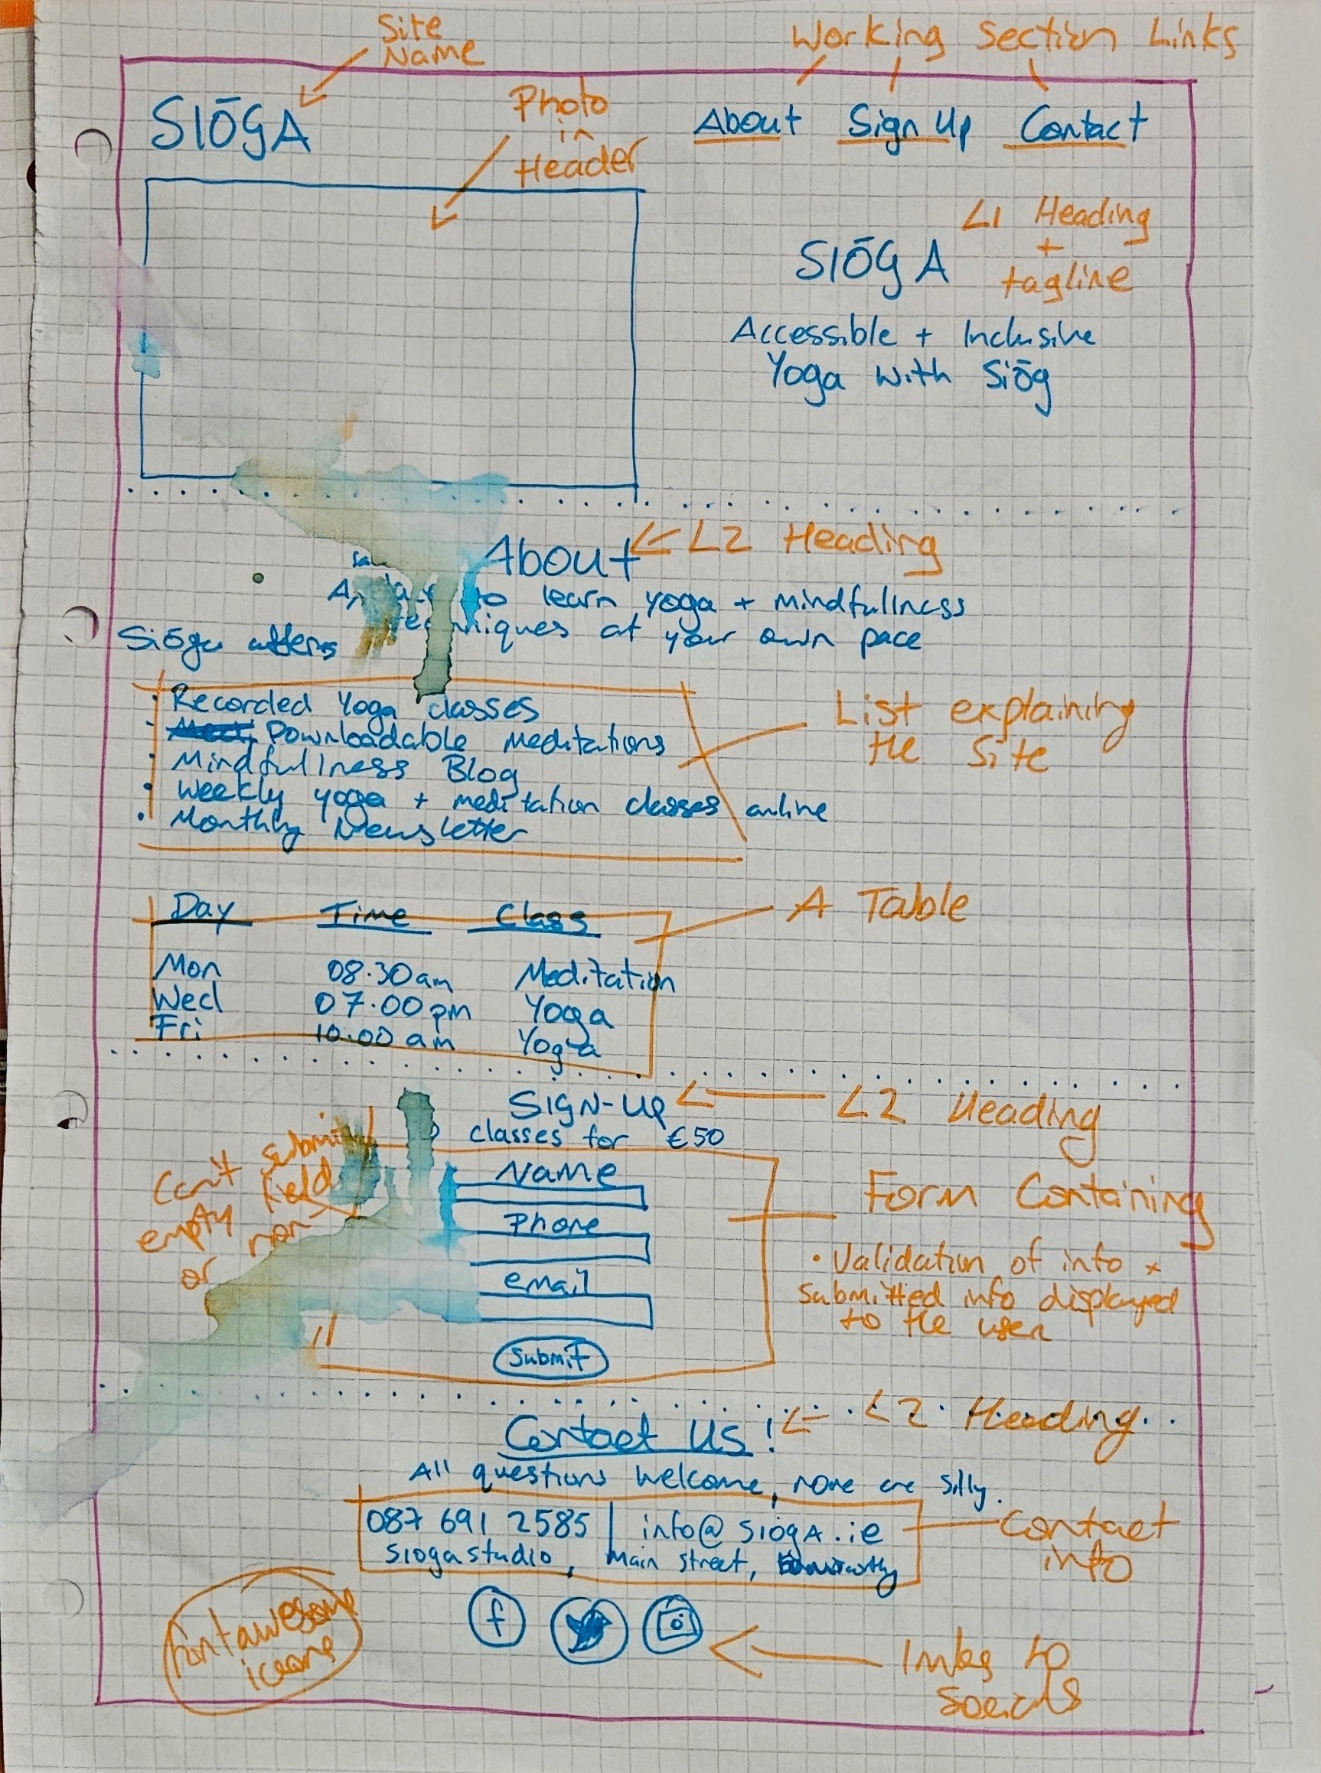 Site
Name
Working Section Links
SIŌGA
Photo
in
Header
About Sign Up Contact
L1 Heading
+
tagline
SIŌGA
Accessible + Inclusive
Yoga with Siōg
About
L2 Heading
to learn yoga + mindfullness
techniques at your own pace
Siōga offers
• Recorded Yoga classes
• Downloadable meditations
• Mindfullness Blog
• Weekly yoga + meditation classes online
• Monthly Newsletter
List explaining
the site
A Table
Day Time Class
Mon 08.30am Meditation
Wed 07.00pm Yoga
Fri 10.00 am Yoga
SIGN-UP
L2 Heading
classes for €50
Can't submit
empty field
or non
Name
Phone
email
Submit
Form Containing
• Validation of info +
submitted info displayed
to the user
Contact Us!
L2 Heading
All questions welcome, none are silly.
087 691 2585 | info@siōgA.ie
Sioga studio, main street,
Contact
info
fontawesome
icons
f
links to
Socials